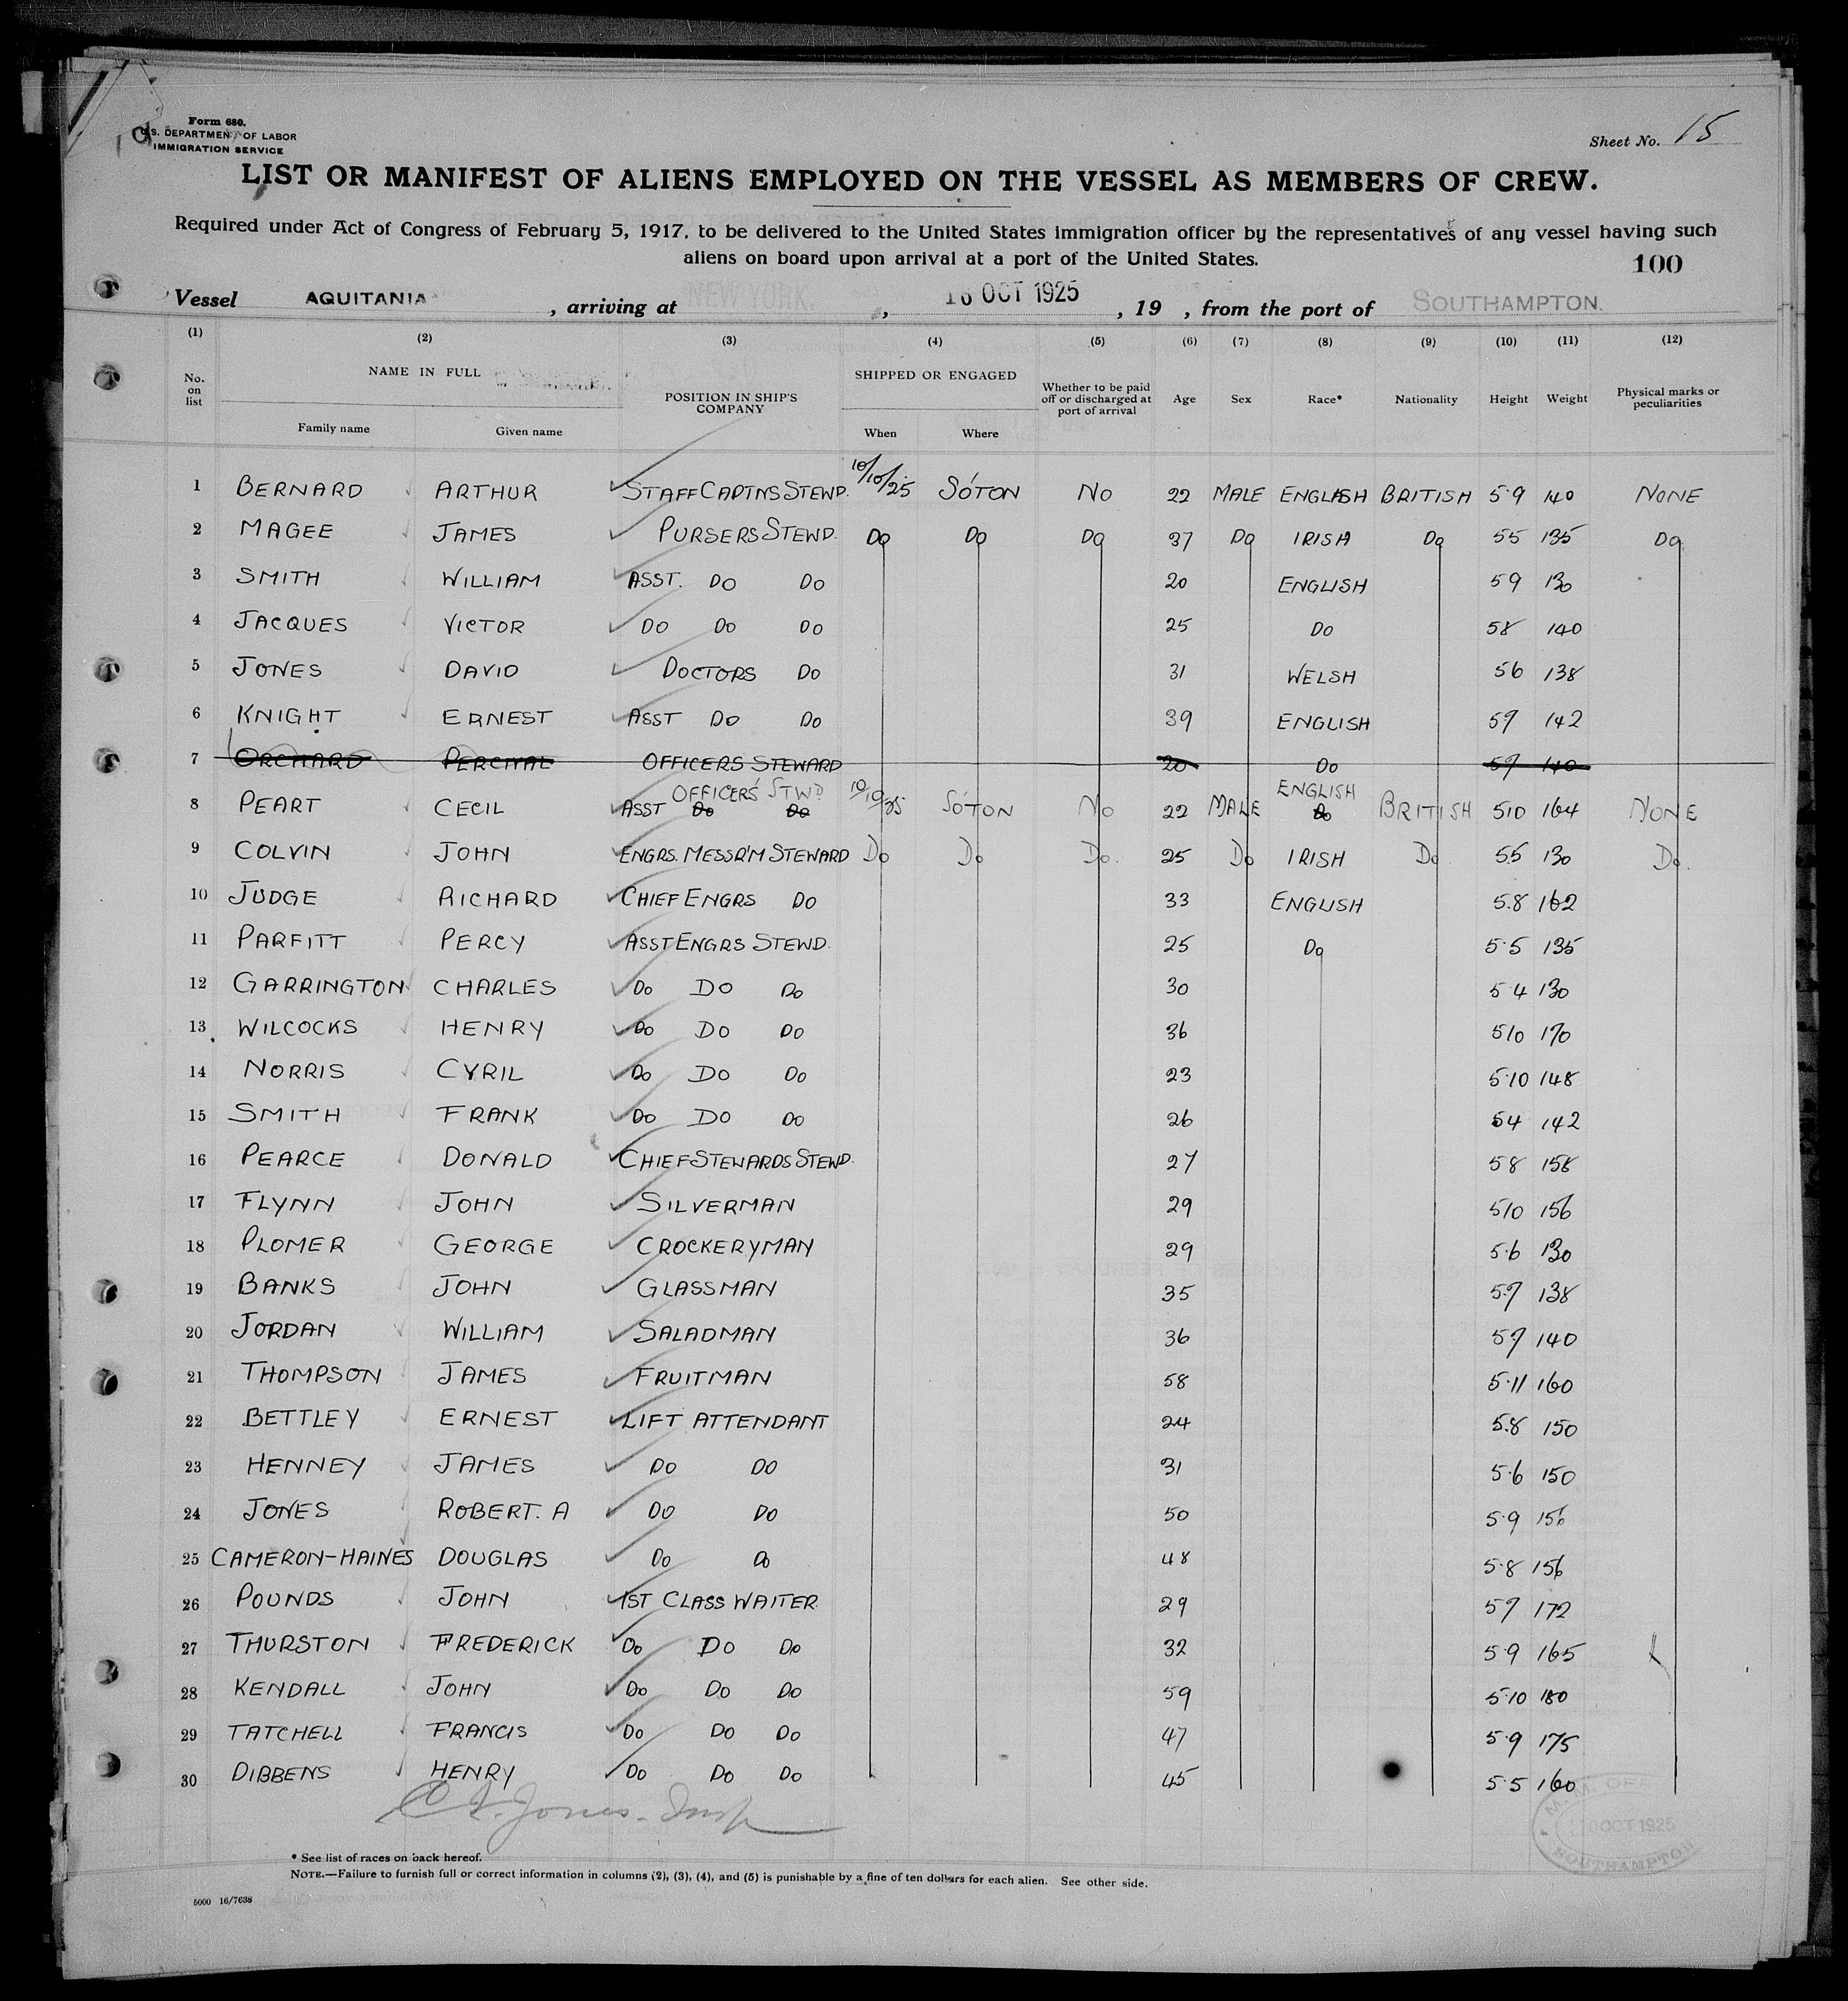 Form 680.
U.S. DEPARTMENT OF LABOR
IMMIGRATION SERVICE
Sheet No. 15
LIST OR MANIFEST OF ALIENS EMPLOYED ON THE VESSEL AS MEMBERS OF CREW.
Required under Act of Congress of February 5, 1917, to be delivered to the United States immigration officer by the representatives of any vessel having such
aliens on board upon arrival at a port of the United States.
100
Vessel AQUITANIA, arriving at NEW YORK., 16 OCT 1925, 19 , from the port of SOUTHAMPTON.
(1) (2) (3) (4) (5) (6) (7) (8) (9) (10) (11) (12)
No. on list NAME IN FULL POSITION IN SHIP'S COMPANY SHIPPED OR ENGAGED Whether to be paid off or discharged at port of arrival Age Sex Race* Nationality Height Weight Physical marks or peculiarities
Family name Given name When Where
1 BERNARD ARTHUR STAFF CAPTNS STEWD. 10/10/25 SO'TON NO 22 MALE ENGLISH BRITISH 5·9 140 NONE
2 MAGEE JAMES PURSERS STEWD. DO DO DO 37 DO IRISH DO 55 135 DO
3 SMITH WILLIAM ASST. DO DO 20 ENGLISH 59 130
4 JACQUES VICTOR DO DO DO 25 DO 58 140
5 JONES DAVID DOCTORS DO 31 WELSH 56 138
6 KNIGHT ERNEST ASST DO DO 39 ENGLISH 57 142
7 ORCHARD PERCIVAL OFFICERS STEWARD 20 DO 57 140
OFFICERS' STWD ENGLISH
8 PEART CECIL ASST DO DO 10/10/25 SO'TON NO 22 MALE DO BRITISH 510 164 NONE
9 COLVIN JOHN ENGRS. MESSR'M STEWARD DO DO DO. 25 DO IRISH DO 5.5 130 DO.
10 JUDGE RICHARD CHIEF ENGRS DO 33 ENGLISH 5.8 162
11 PARFITT PERCY ASST ENGRS STEWD. 25 DO 5·5 135
12 GARRINGTON CHARLES DO DO DO 30 5 4 130
13 WILCOCKS HENRY DO DO DO 36 510 170
14 NORRIS CYRIL DO DO DO 23 5·10 148
15 SMITH FRANK DO DO DO 26 54 142
16 PEARCE DONALD CHIEF STEWARDS STEWD. 27 58 158
17 FLYNN JOHN SILVERMAN 29 510 156
18 PLOMER GEORGE CROCKERYMAN 29 5·6 130
19 BANKS JOHN GLASSMAN 35 5.7 138
20 JORDAN WILLIAM SALADMAN 36 5.7 140
21 THOMPSON JAMES FRUITMAN 58 5·11 160
22 BETTLEY ERNEST LIFT ATTENDANT 24 5.8 150
23 HENNEY JAMES DO DO 31 5·6 150
24 JONES ROBERT. A DO DO 50 5·9 156
25 CAMERON-HAINES DOUGLAS DO DO 48 5·8 156
26 POUNDS JOHN 1ST CLASS WAITER. 29 57 172
27 THURSTON FREDERICK DO DO DO 32 5·9 165
28 KENDALL JOHN DO DO DO 59 5·10 180
29 TATCHELL FRANCIS DO DO DO 47 5·9 175
30 DIBBENS HENRY DO DO DO 45 5·5 160
C. Jones. Insp
OCT 1925
SOUTHAMPTON
* See list of races on back hereof.
NOTE.—Failure to furnish full or correct information in columns (2), (3), (4), and (5) is punishable by a fine of ten dollars for each alien. See other side.
5000 16/7638